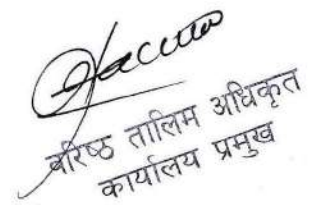 वरिष्ठ तालिम अधिकृत
कार्यालय प्रमुख